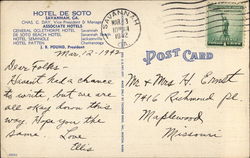 HOTEL DE SOTO
SAVANNAH, GA.
CHAS. G. DAY, Vice-President & Manager
ASSOCIATE HOTELS
GENERAL OGLETHORPE HOTEL Savannah
DE SOTO BEACH HOTEL Savannah Beach
HOTEL SEMINOLE Jacksonville
HOTEL PATTEN Chattanooga
J. B. POUND, President
SAVANNAH
MAR 13
1942
GA.
POST CARD
Mar. 12-1942
Dear Folks-
Havent had a chance
to write but we are
all okay down this
way. Hope you the
same. Love
Ellis
Mr & Mrs H. Ernst
7416 Richmond pl.
Maplewood
Missouri